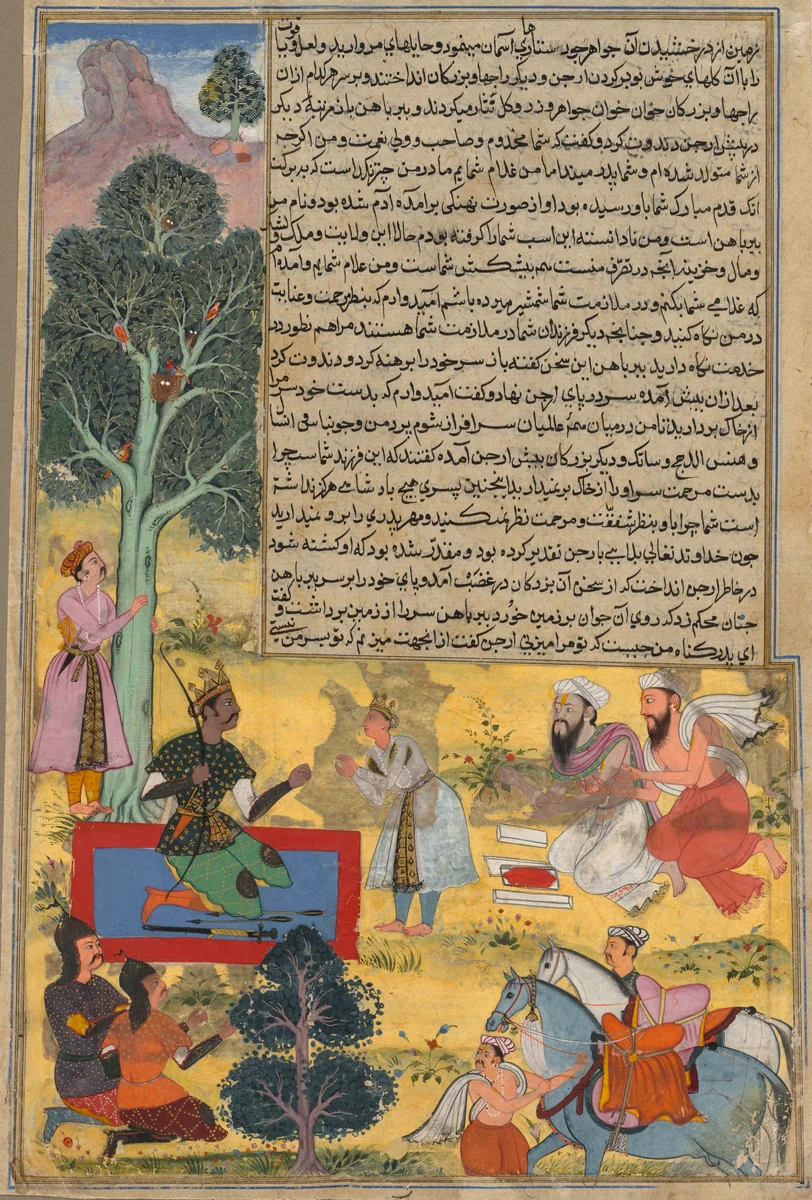 زمین از درخشیدن آن جواهر چون ستارهای آسمان مینمود و حایلهای مروارید و لعل و یاقوت
را با آن کلهای خوش بو بر کردن ارجن و دیکر راجها و بزرکان انداختند و بر سر هر کدام ازان
راجها و بزرکان خوان خوان جواهر و زر و کل نثار میکردند و ببرباهن باز مرتبه دیکر
در پیش ارجن دندوت کرد و کفت که شما مخدوم و صاحب و ولی نعمت و من اکرچه
از شما متولد شده ام و شما پدر من اما من غلام شمایم مادر من است که ببرکت
قدم مبارک شما باو رسیده بود او از صورت نهنکی برآمده آدم شده بود و نام من
ببرباهن است و من نادانسته این اسب شما را کرفته بودم حالا این ولایت و ملک و لشکر
و مال و خزینه و آنچه در تصرف منست همه پیشکش شماست و من غلام شمایم و آمده ام
که غلامی شما بکنم و در ملازمت شما شمشیر میزده باشم امیدوارم که بنظر مرحمت و عنایت
در من نکاه کنید و چنانچه دیکر فرزندان شما در ملازمت شما هستند مرا هم بطور در
خدمت نکاه دارید ببرباهن این سخن کفته باز سر خود را برهنه کرد و دندوت کرد
بعد ازان پیش آمده سر در پای ارجن نهاد و کفت امیدوارم که بدست خود سر من
از خاک بردارید تا من در میان همه عالمیان سرافراز شوم پردمن و جوبناسی و انسال
و هنس الدهج و ساتک و دیکر بزرکان پیش ارجن آمده کفتند که این فرزند شماست چرا
بدست مرحمت سر او را از خاک بر نمیدارید اینچنین پسری هیچ بادشاهی هرکز نداشته
است شما چرا باو بنظر شفقت و مرحمت نظر نمیکنید و مهر پدری را بر و نمیدارید
چون خداوند تعالی بلایی بارجن تقدیر کرده بود و مقدر شده بود که او کشته شود
در خاطر ارجن انداخت که از سخن آن بزرکان در غضب آمد و پای خود را بر سر ببرباهن
چنان محکم زد که روی آن جوان بر زمین خورد ببرباهن سر را از زمین برداشت و کفت
ای پدر کناه من چیست که تو مرا میزنی ارجن کفت از آنجهت میزنم که تو پسر من نیستی